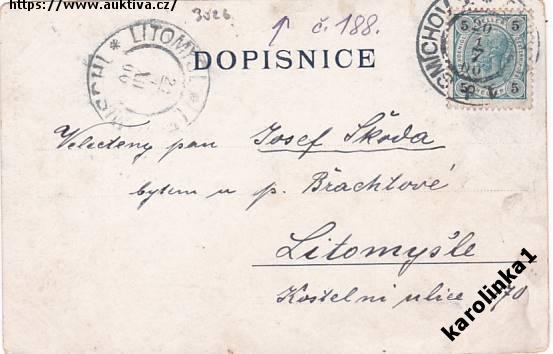 https://www.auktiva.cz/
3526
↑ č. 188.
LITOMYŠL
DOPISNICE
SMICHOV
5 5
5 5
Velectěný pan Josef Škoda
bytem u p. Brachtlové
Litomyšle
Kostelní ulice 70
karolinka1